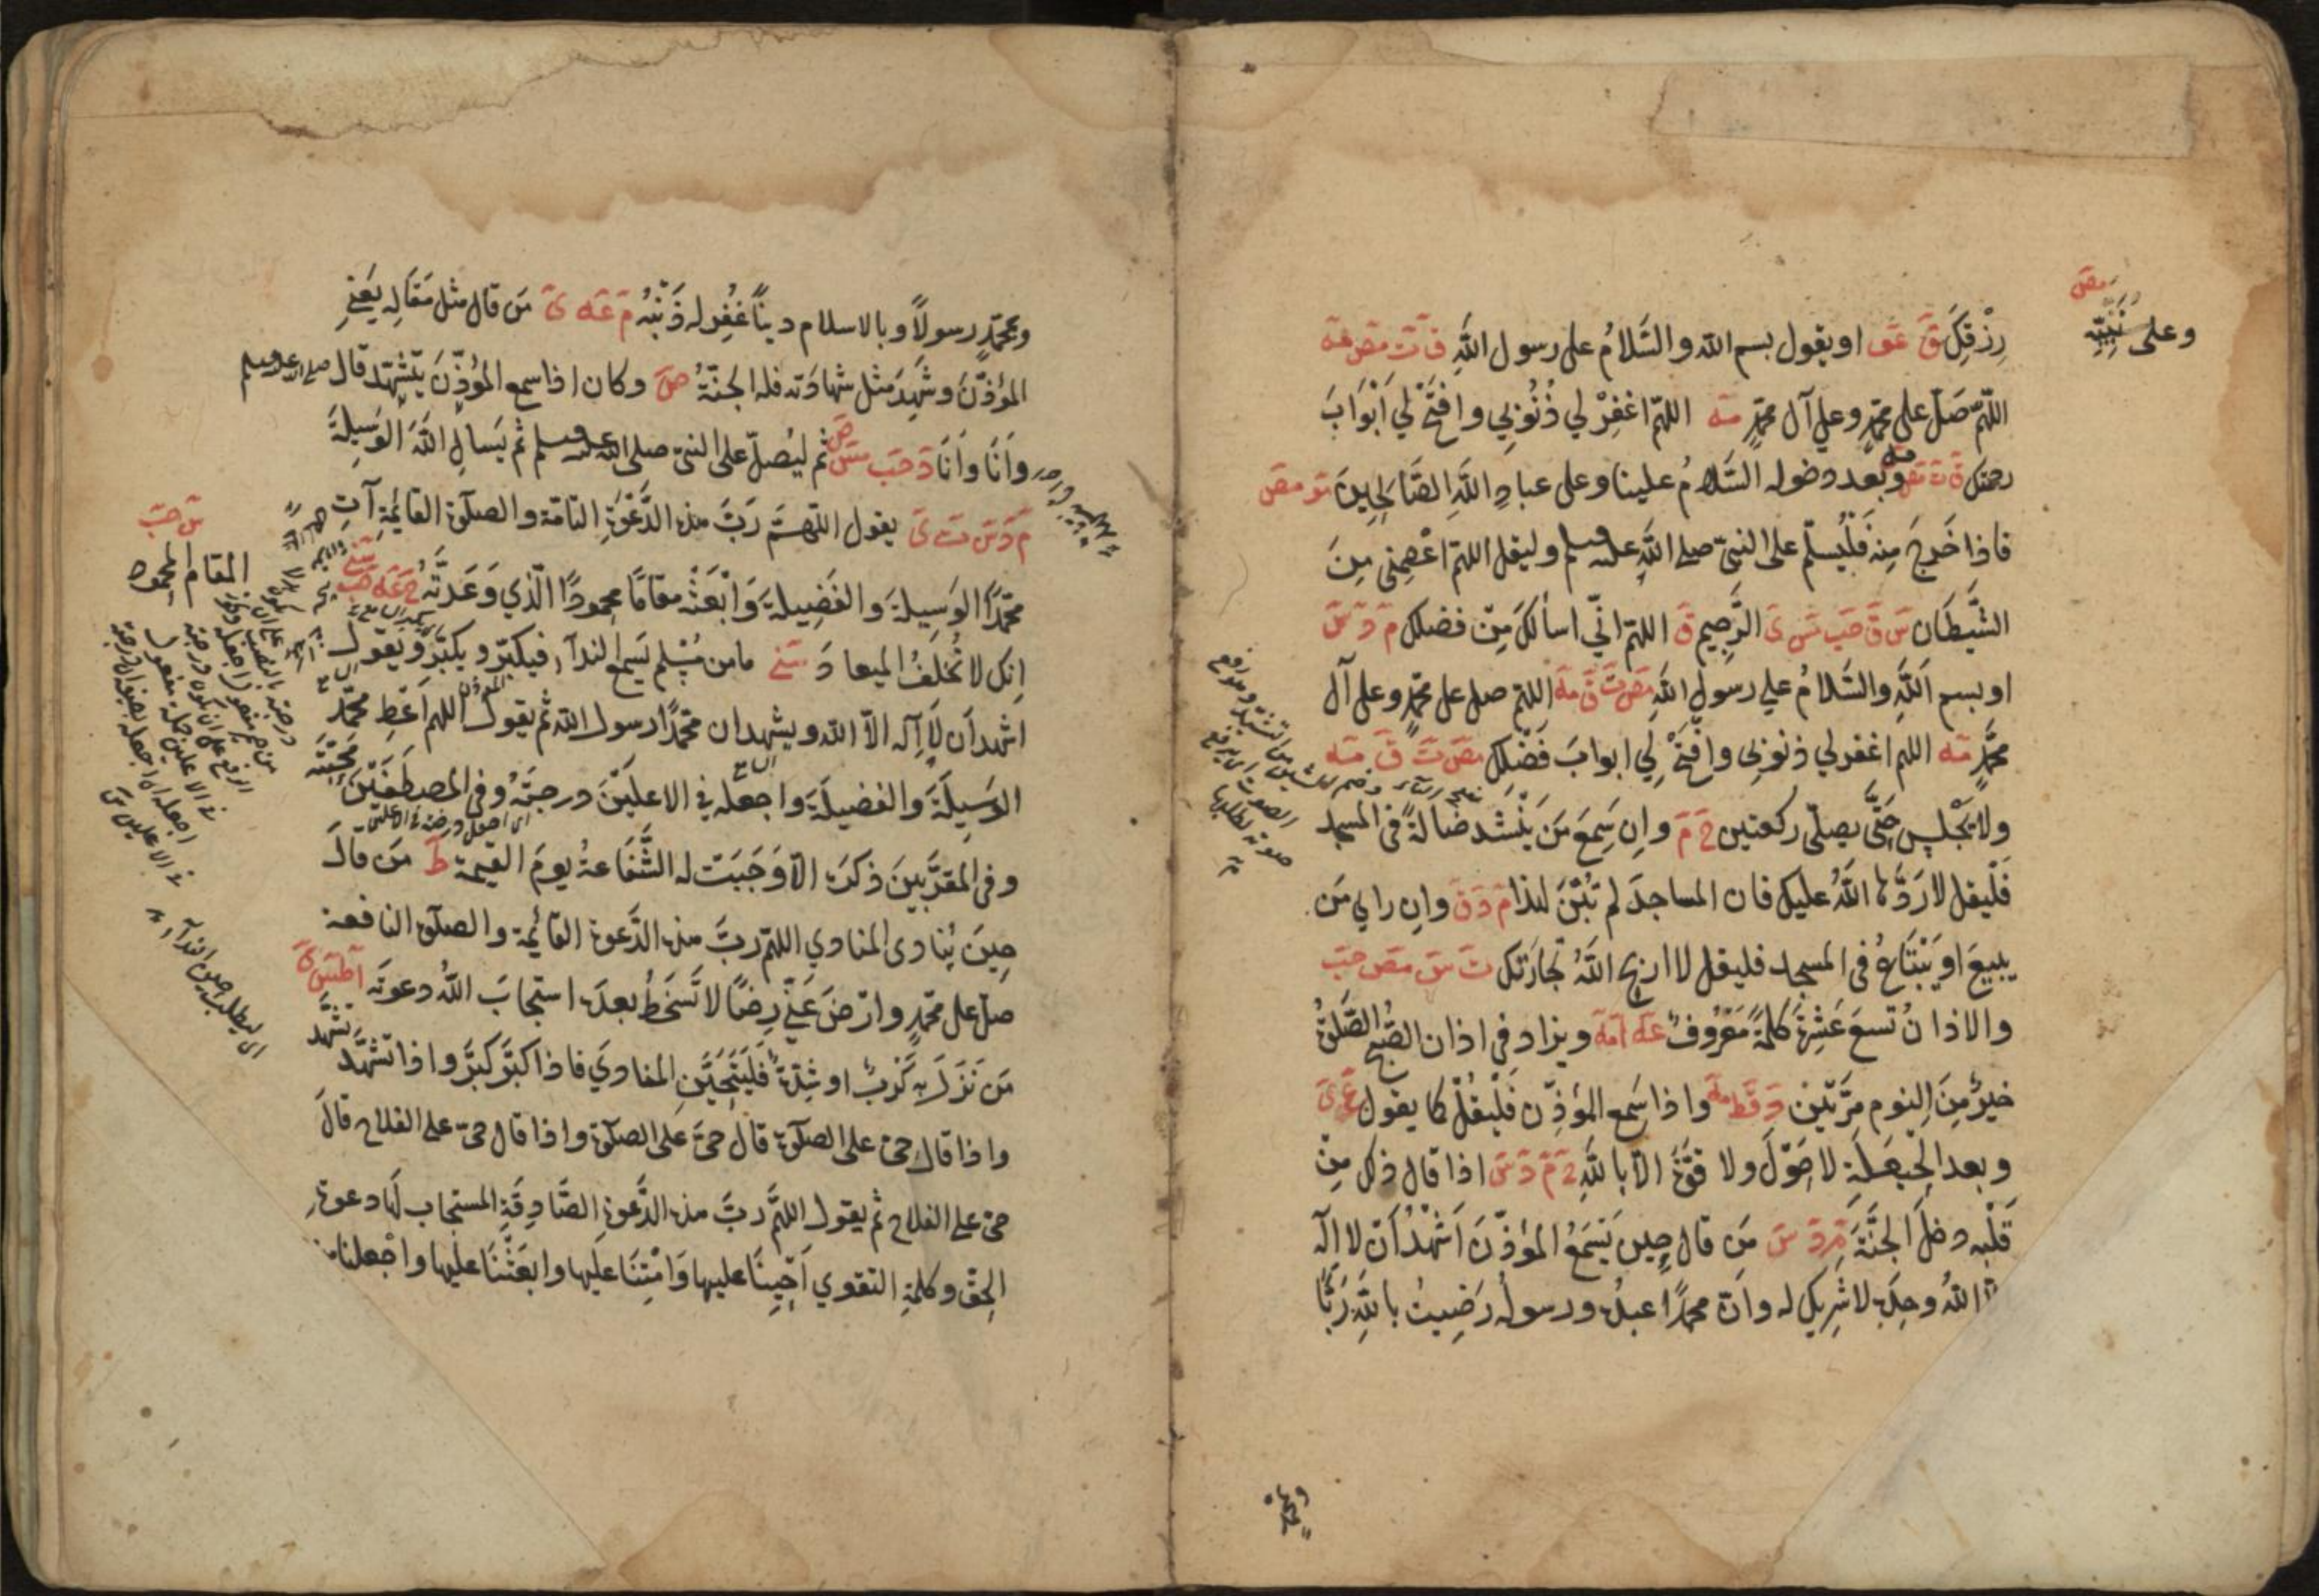 رِزْقِكَ قَ عَو او يقول بسم الله والسَّلامُ على رسول اللهِ قَ تَ مصَ مَه
اللّهمّ صَلّ على محمّدٍ وعلى آل محمّدٍ مَه اللهمّ اغفِرْ لي ذُنُوبي وافتَحْ لي أَبْوَابَ
رحمتك قَ تَ مصَ مَه وبَعْد دخوله السَّلامُ علينا وعلى عبادِ اللّهِ الصَّالِحِينَ مَو مصَ
فاذا خَرجَ مِنه فَلْيُسَلّم على النبيّ صلى اللّهِ عليه وسلم وليقل اللهمّ اعْصِمْني مِنَ
الشَّيطَان سَ قَ حَبَ مَسَ ىَ الرَّجِيمِ قَ اللهمّ انّي اسألكَ مِنْ فضلك مَ دَ سَ
او بسم اللّهِ والسَّلامُ على رسولِ اللّهِ مصَ تَ قَ مَه اللهمّ صل على محمّدٍ وعلى آل
محمّدٍ مَه اللهم اغفر لي ذنوبي وافتَحْ لِي ابوابَ فَضْلِك مصَ تَ قَ مَه
ولا يَجْلِس حَتَّى يصلّى ركعتين خَ مَ وإن سَمِعَ مَن يَنْشد ضالةً في المسجد
فَلْيقل لا رَدَّها اللّهُ عليك فان المساجدَ لم تُبْنَ لهذا مَ دَ قَ وان راي مَن
يبيعَ او يَبْتَاعُ في المسجد فليقل لا اربح اللّهُ تجارَتَك تَ سَ مصَ حبَ
والاذانُ تسعَ عَشْرَةَ كلمةً مَعْرُوفٌ عَه امَه ويزاد في اذان الصُّبْح الصَّلوةُ
خيرٌ مِنَ النوم مرَّتَيْن دَ قط مَه واذا سَمع المؤذّن فَلْيقُلْ كما يقول عَ ىَ
وبعد الحَيْعَلَةِ لا حَوْلَ ولا قوَّةَ الّا باللّهِ خَ مَ دَ سَ اذا قال ذلك مِنْ
قَلْبِه دخلَ الجنَّةَ مَ دَ سَ مَن قال حِين يَسْمَعُ المؤذّنَ اَشْهَدُ اَن لا اله
الا اللهُ وحدَه لا شرِيك له وانّ محمدًا عبدُه ورسولُه رَضِيتُ باللّهِ رَبًّا
وعلى نَبِيِّه
مصَ
وبمحمد
وبمحمّدٍ رسولاً وبالاسلام دينًا غُفِر له ذَنْبُه مَ عَه ىَ مَن قال مثل مَقَالِه يَعْنِي
المؤذّنَ وشَهِدَ مثل شهادَته فله الجنَّةُ صَ وكان اذا سمع المؤذّنَ يتشهّد قال صلى الله عليه وسلم
وَاَنَا وَاَنَا دَ حَبَ مسَ ثم ليُصلّ على النبيّ صلى الله عليه وسلم ثم يَسأل اللّهَ الوَسِيلَةَ
مَ دَ سَ تَ ىَ يقول اللّهمَّ رَبَّ هذه الدَّعْوَةِ التامّة والصلوة القائِمَةِ آتِ
محمّدًا الوَسِيلةَ والفَضِيلةَ وَابْعَثْه مقامًا محمودًا الَّذي وَعَدتَّه خَ عَه حَبَ سَني
انك لا تُخْلفُ الميعاد سَني ما من مُسْلم يَسمع الندآء فيكبّر ويكبّر ويقول
اشهد اَن لا اِله الّا الله ويشهد ان محمّدًا رسول الله ثم يقول اللهم اَعْطِ محمّدًا
الوَسيلَةَ والفضيلَةَ واجعله في الاعلَيْنَ درجتَه وفي المصطَفَيْنَ مَحَبَّتَه
وفي المقرَّبينَ ذكرَه الّا وَجَبَت له الشَّفَاعةُ يومَ القيمة طَ مَن قالَ
حِينَ يُنادى المنادي اللهمّ ربَّ هذه الدَّعوة القائِمة والصلوة النافعة
صلّ على محمّدٍ وارْضَ عَنّي رِضًا لا تَسْخَطُ بعدَه استجابَ اللهُ دعوتَه آ طَسَ ىَ
مَن نَزَلَ به كَرْبٌ او شِدّةٌ فَلْيَتَحَيَّن المنادِي فاذا كبَّر كبَّر واذا تَشَهَّد تَشَهَّد
واذا قال حيّ على الصلوة قال حيَّ على الصلوة واذا قال حيّ على الفلاح قالَ
حيّ على الفلاح ثم يقول اللهمّ ربَّ هذه الدَّعوةِ الصَّادِقَةِ المستجاب لَها دعوةِ
الحقّ وكلمةِ التقوي اَحْيِنَا عليها وَاَمِتْنَا عليها وابعَثْنَا عليها واجْعلنا من
المقام المحمود
سَ حَبَ
اى ليطلب حين الندآء